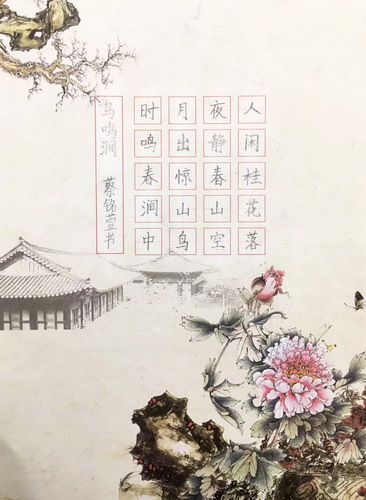 人闲桂花落
夜静春山空
月出惊山鸟
时鸣春涧中
鸟鸣涧 蔡铭萱书